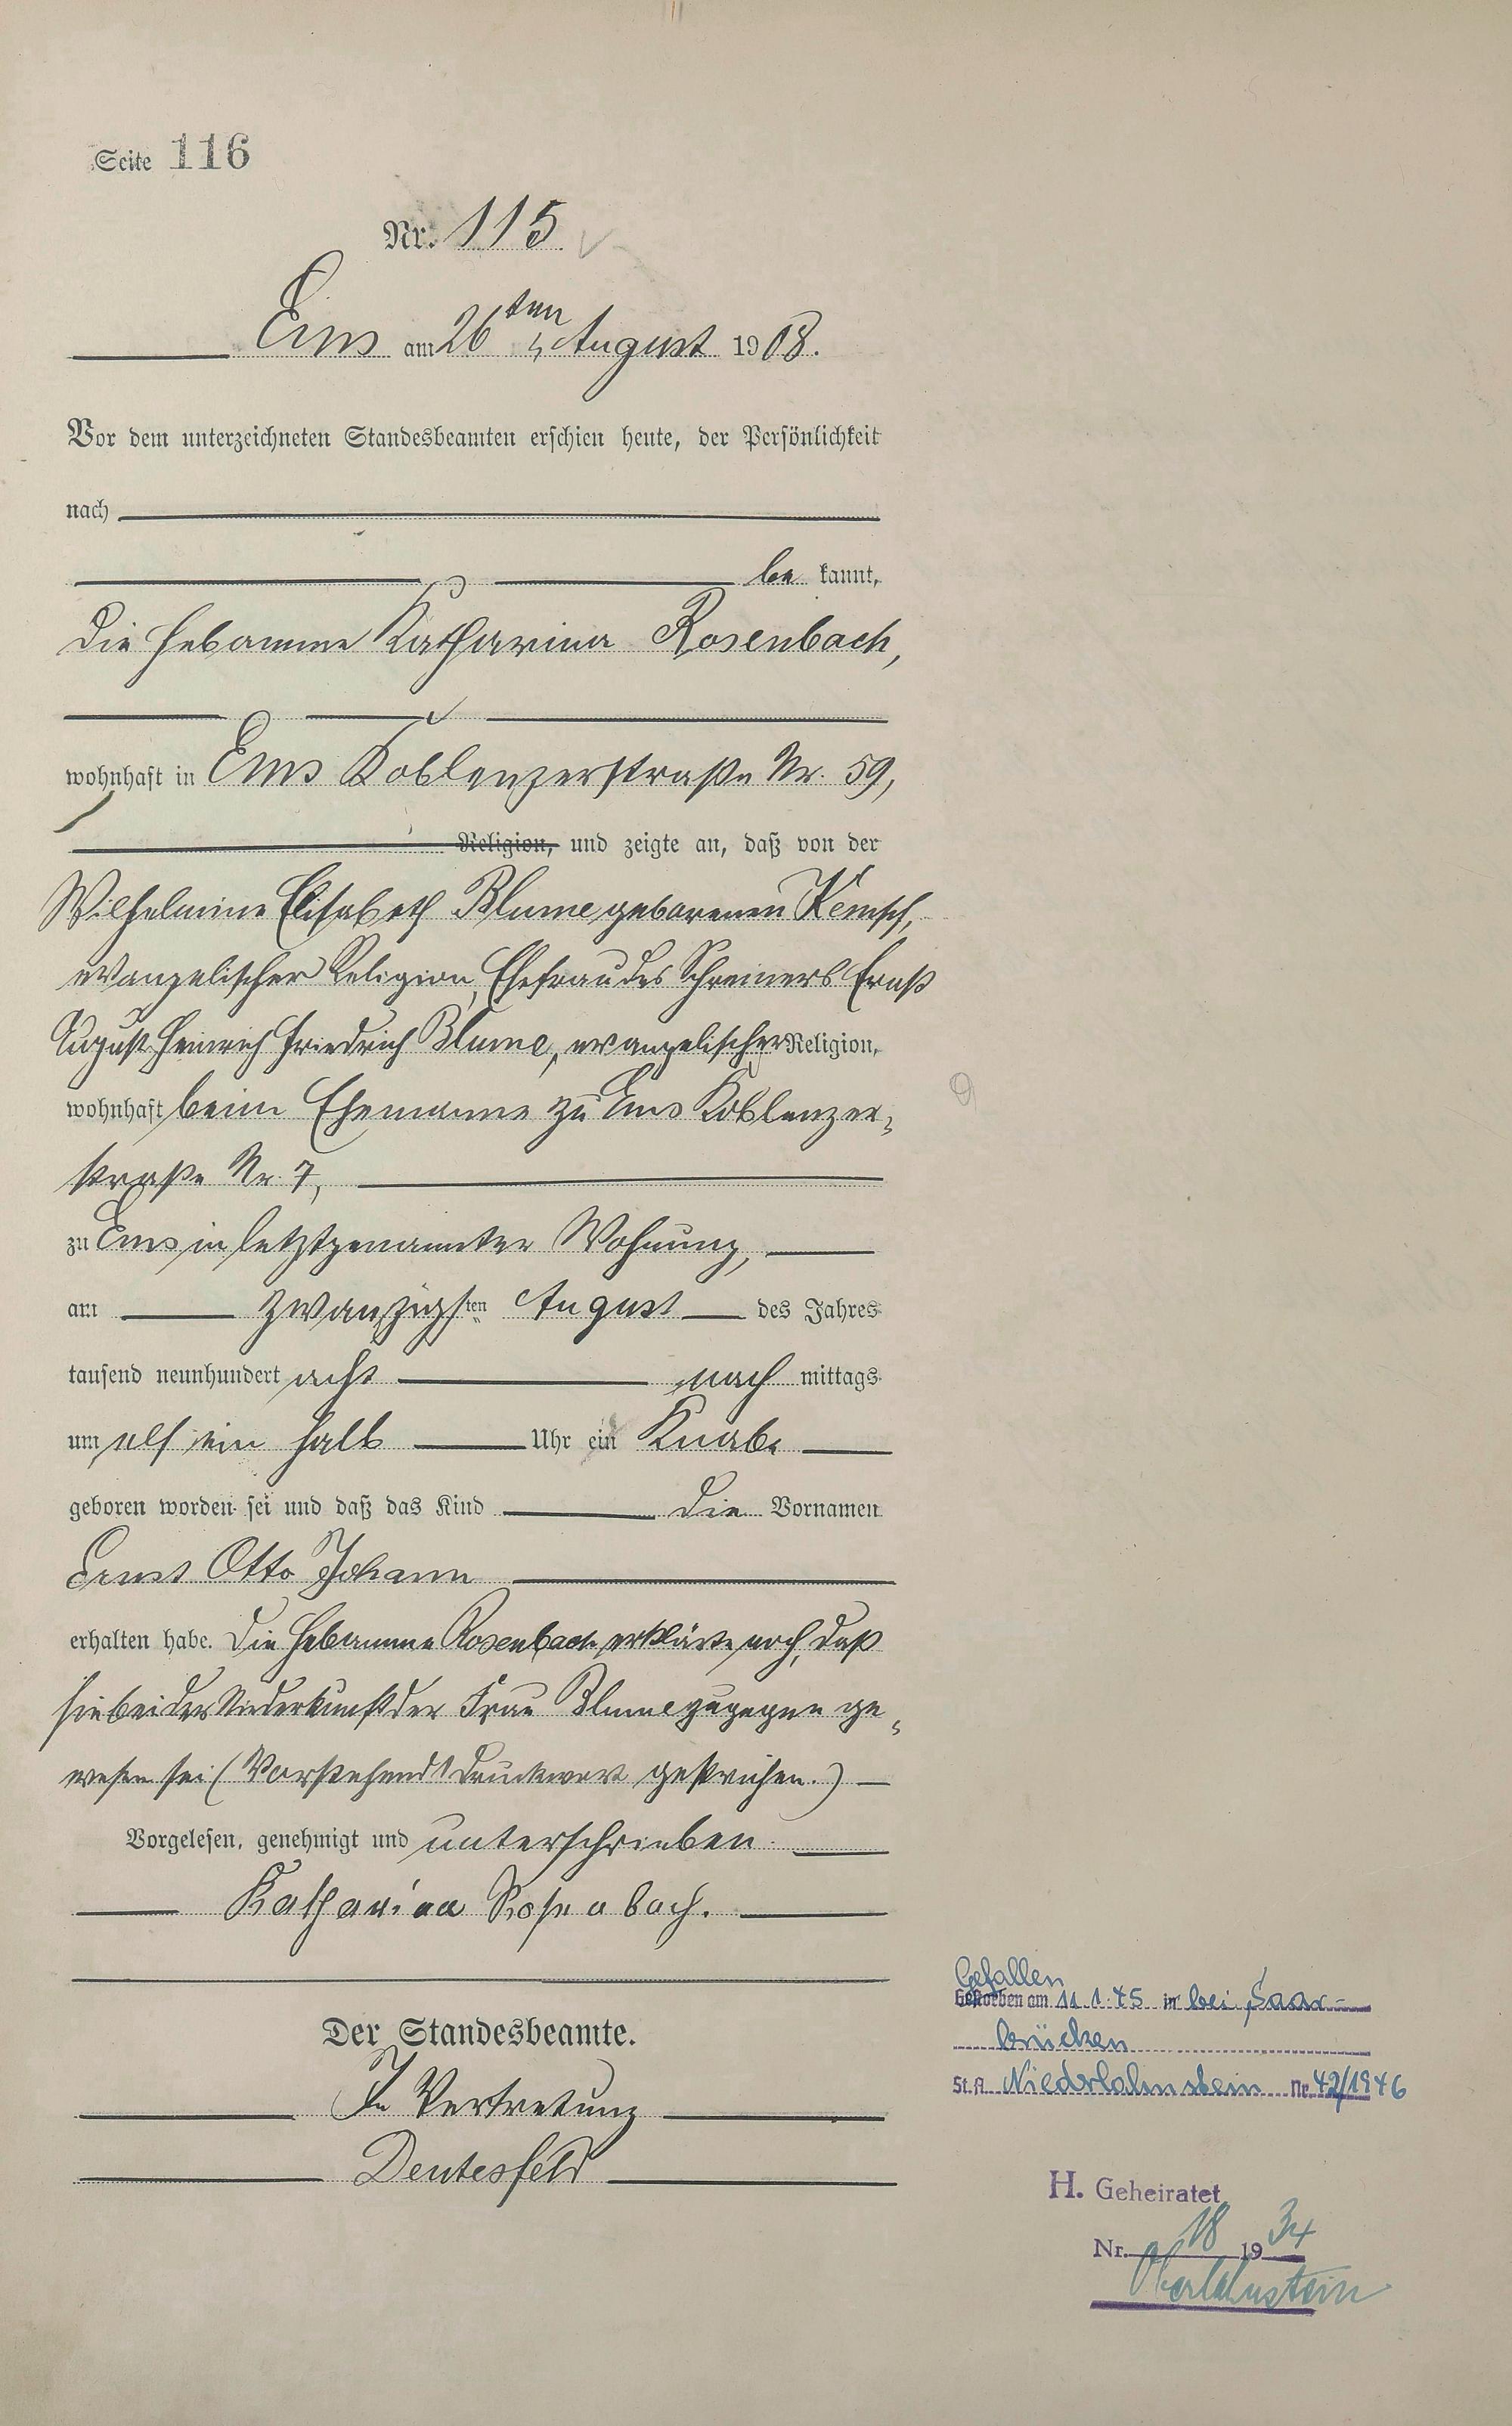 Seite 116
Nr. 115
Ems am 26ten August 1908.
Vor dem unterzeichneten Standesbeamten erschien heute, der Persönlichkeit
nach
be kannt,
die Hebamme Katharina Rosenbach,
wohnhaft in Ems Koblenzerstraße Nr. 59,
Religion, und zeigte an, daß von der
Wilhelmine Elisabeth Blume geborenen
evangelischer Religion, Ehefrau des Schreiners Ernst
August Heinrich Friedrich Blume, evangelischer Religion,
wohnhaft beim Ehemanne zu Ems Koblenzer-
straße Nr. 7,
zu Ems in letztgenannter Wohnung,
am zwanzigsten August des Jahres
tausend neunhundert acht nach mittags
um elf ein halb Uhr ein Knabe
geboren worden sei und daß das Kind die Vornamen
Ernst Otto Johann
erhalten habe. Die Hebamme Rosenbach erklärte noch, daß
sie bei der Niederkunft der Frau Blume zugegen ge-
wesen sei (Vorstehend 1 Druckwort gestrichen.)
Vorgelesen, genehmigt und unterschrieben.
Katharina Rosenbach.
Der Standesbeamte.
In Vertretung
Deutesfeld
Gefallen
Gestorben am 11.1.45 in bei Saar-
brücken
St.A. Niederlahnstein Nr. 42/1946
H. Geheiratet
Nr. 18 1934
Oberlahnstein